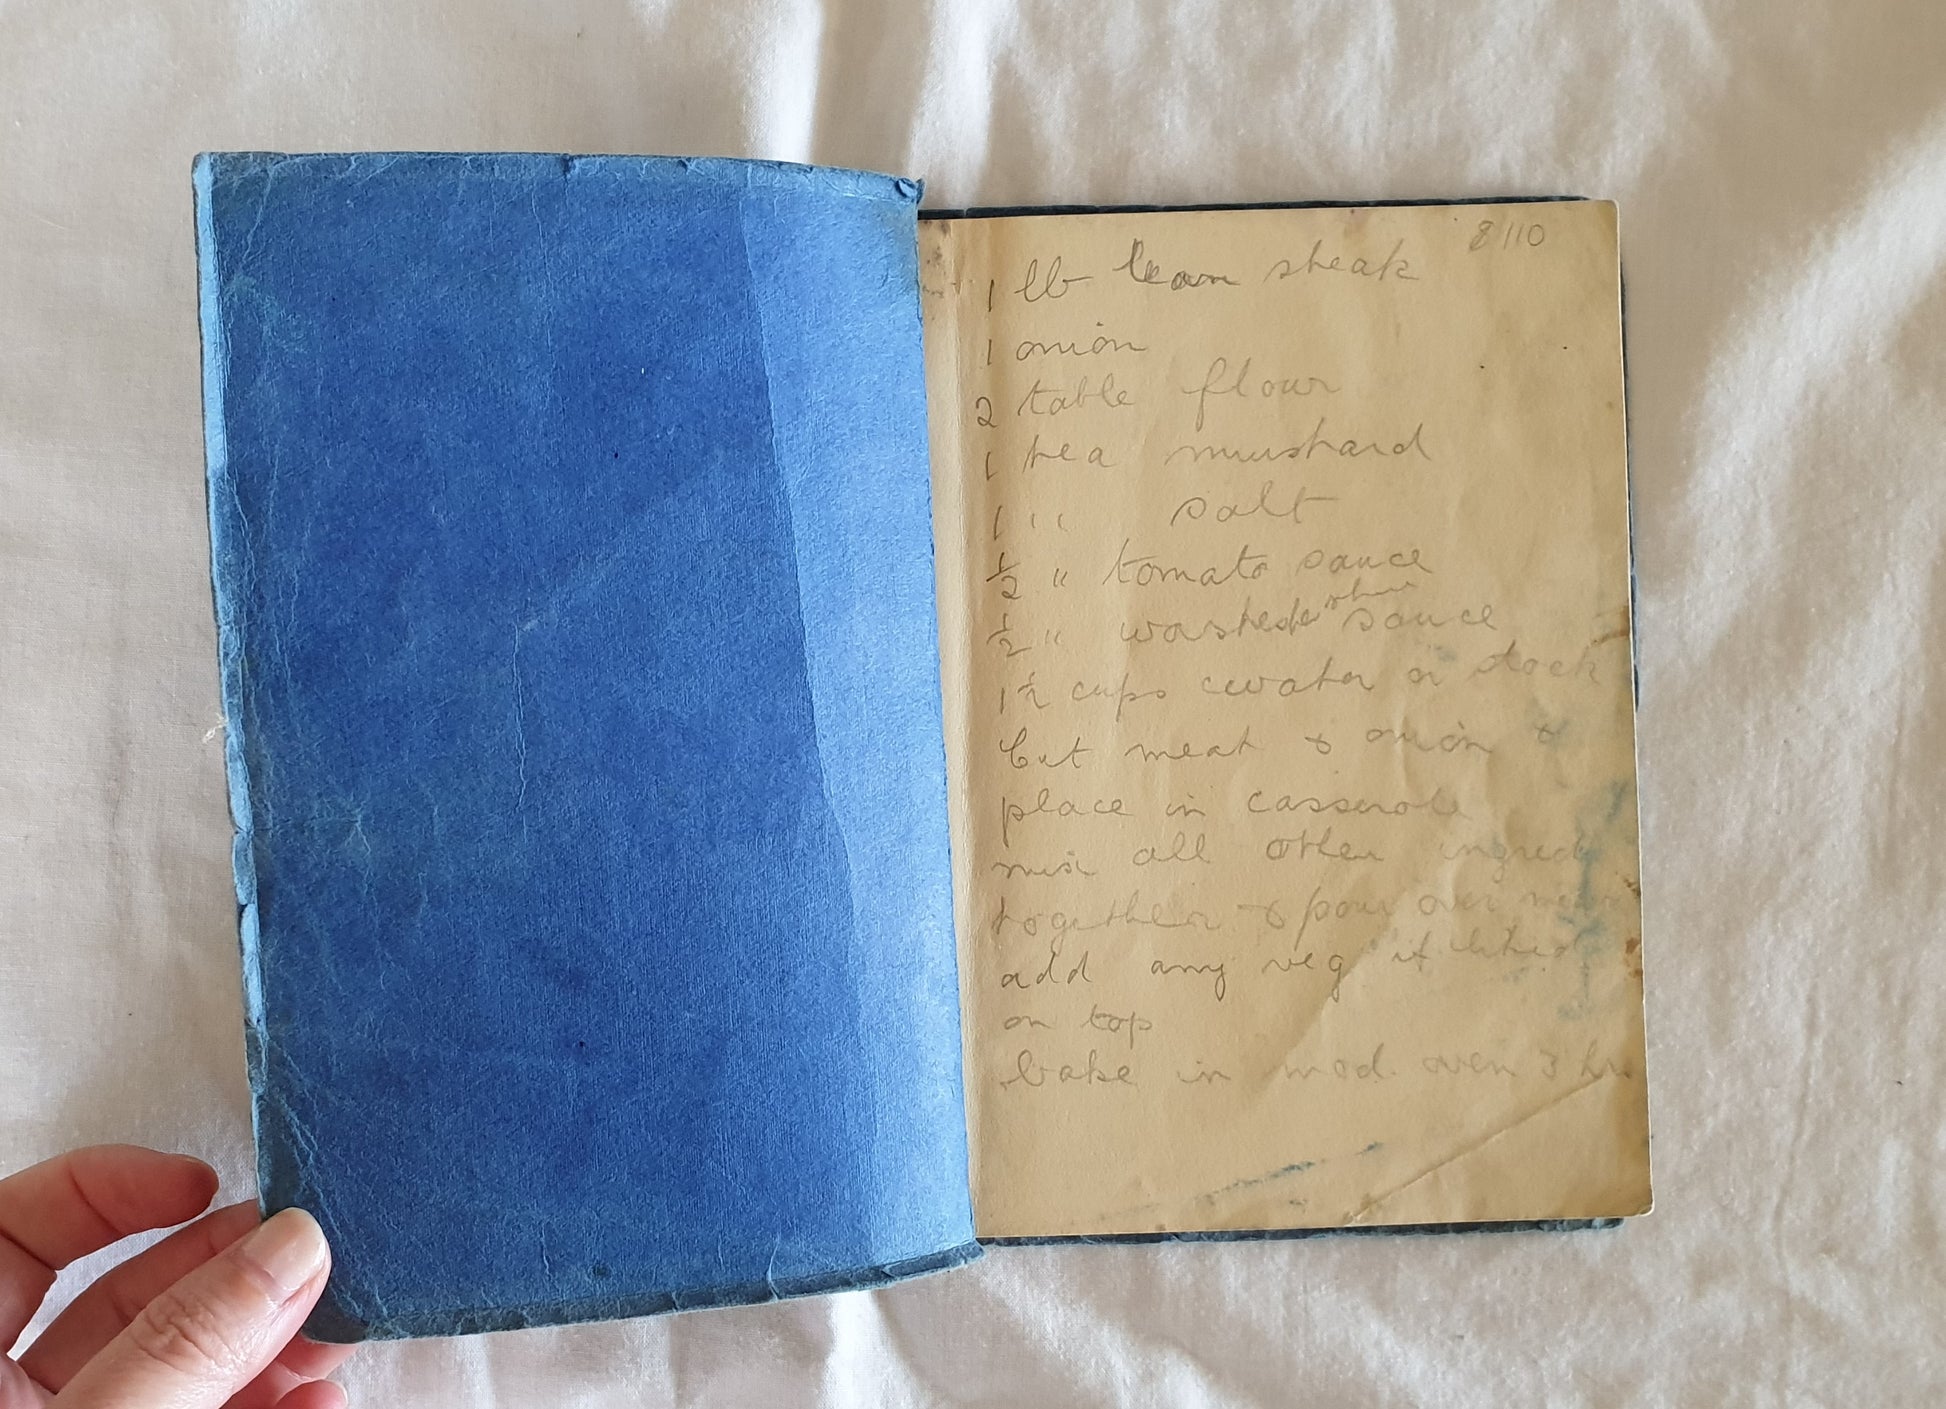 8/10
1 lb lean steak
1 onion
2 table flour
1 tea mustard
1 " salt
1/2 " tomato sauce
1/2 " worshester shire sauce
1 1/2 cups water or stock
Cut meat & onion &
place in casserole
mix all other ingred
together & pour over
add any veg if liked
on top
bake in mod. oven 3 hrs